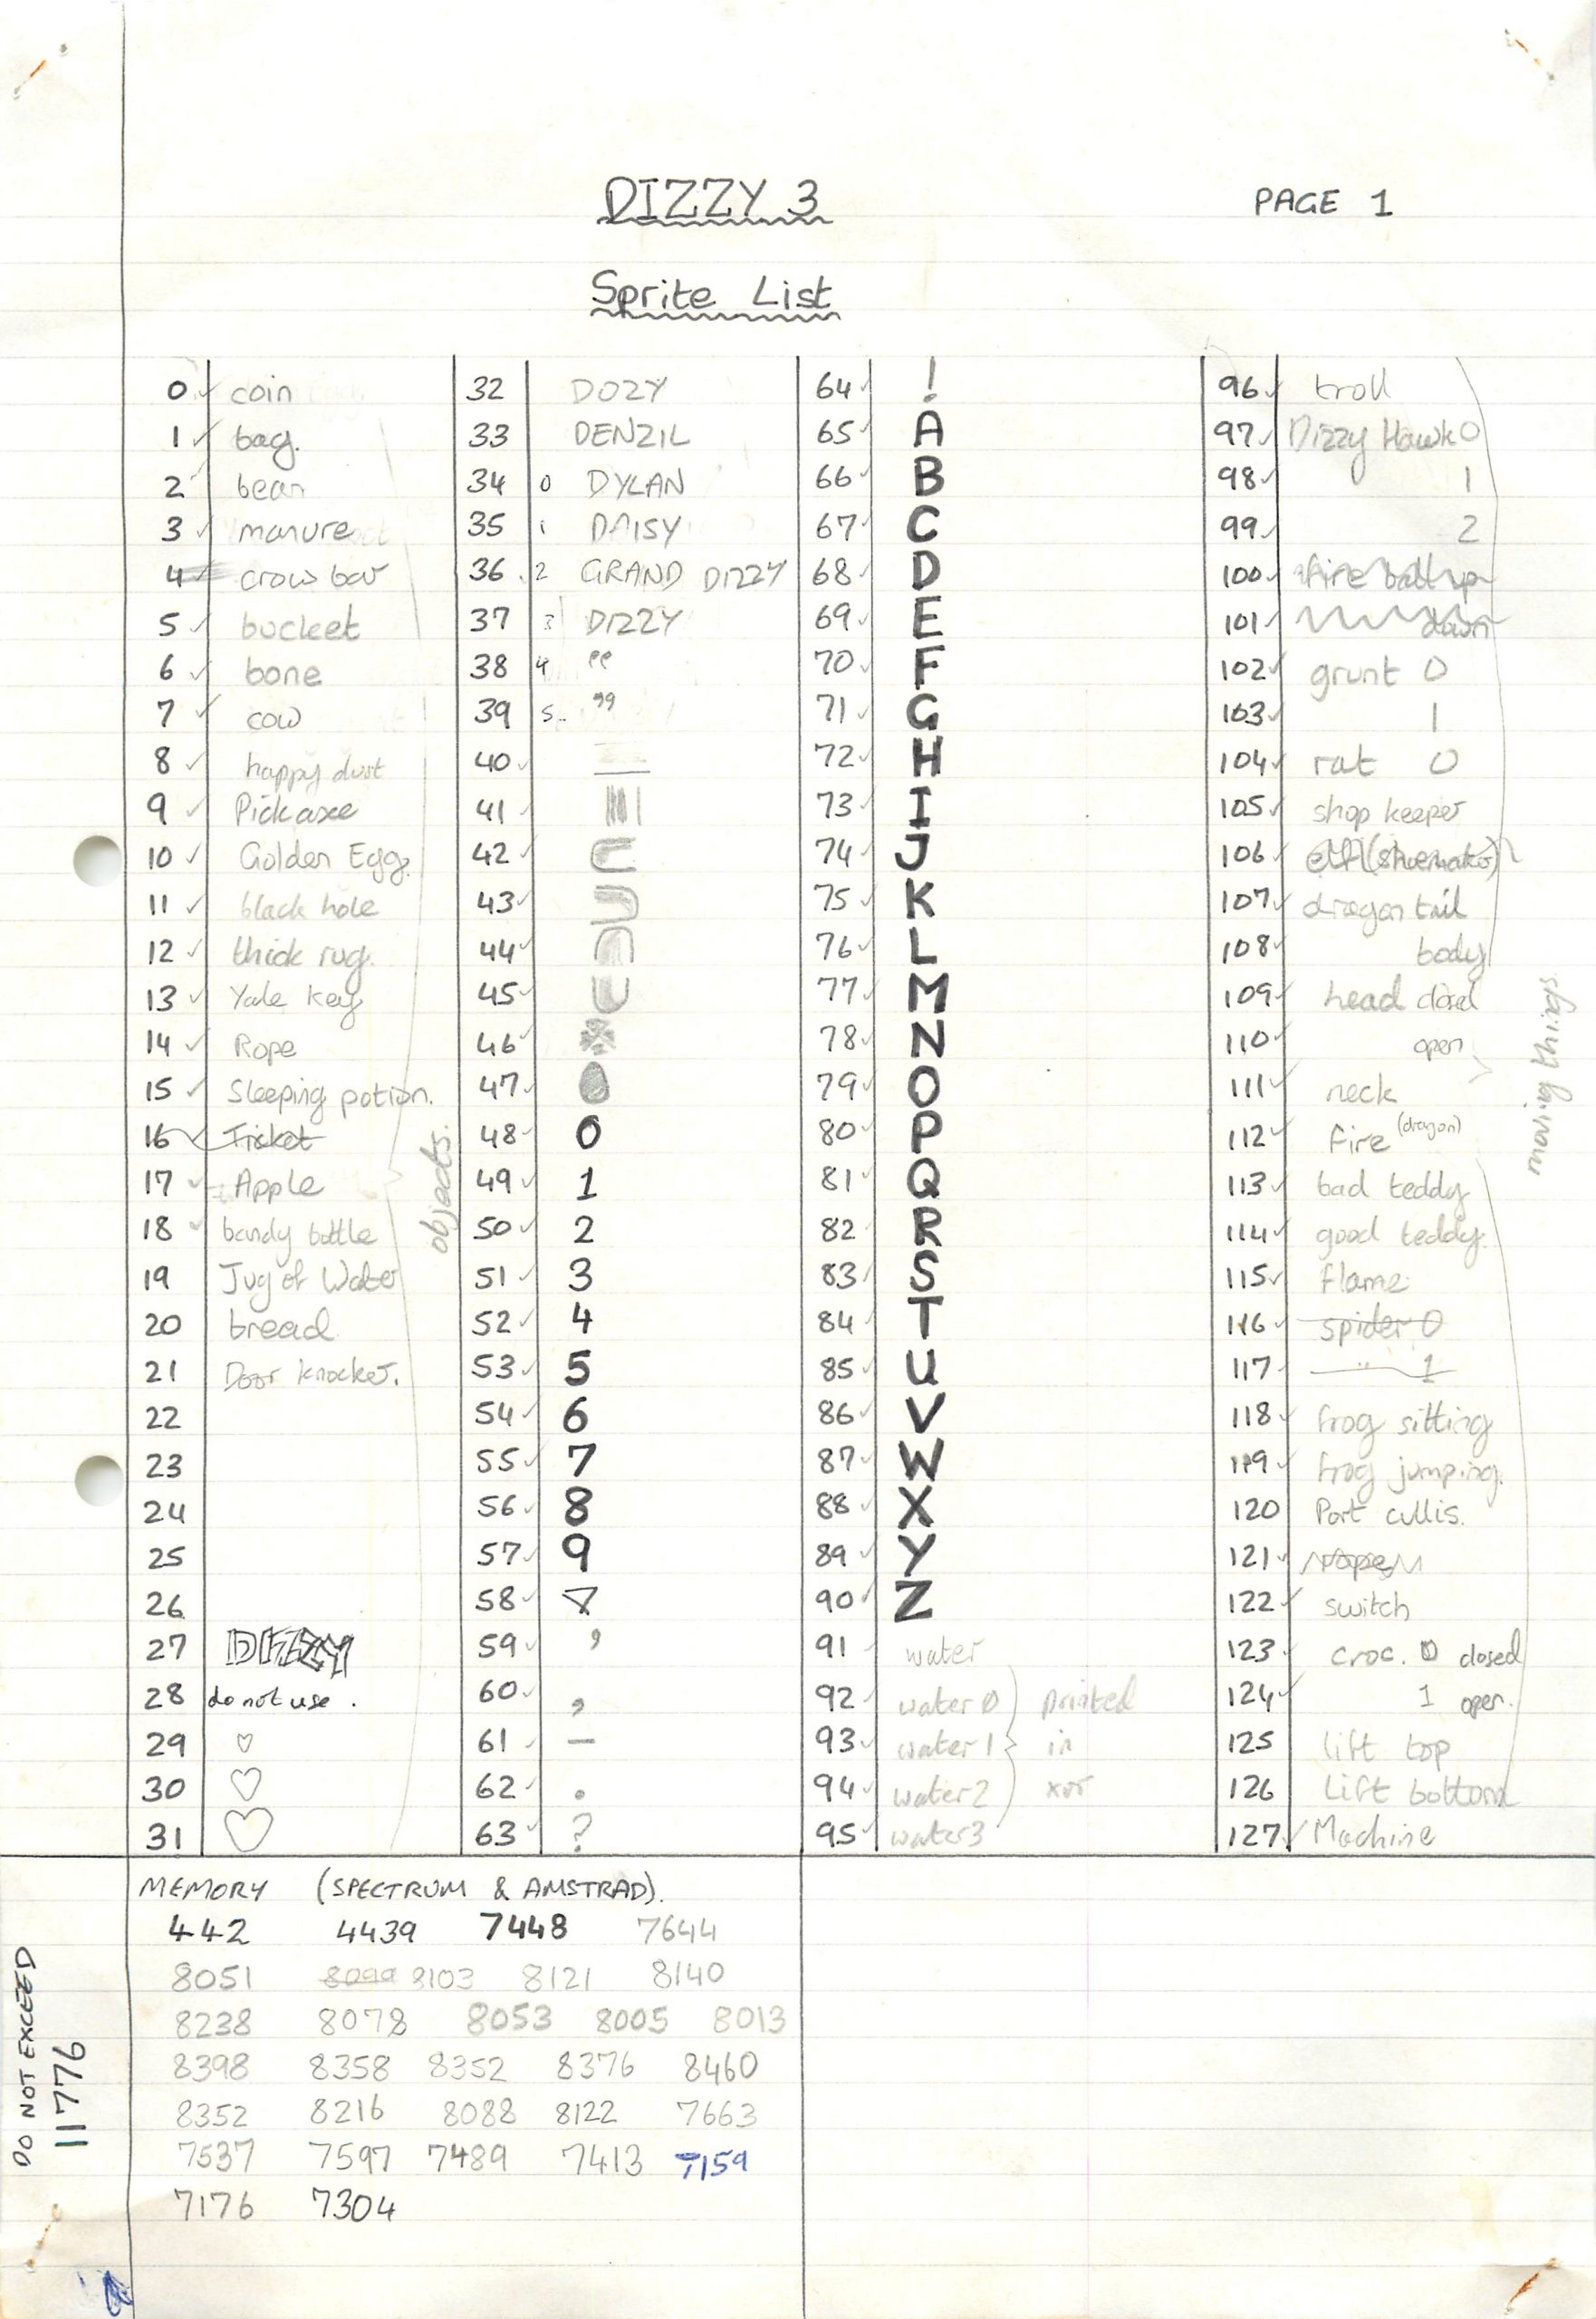 DIZZY 3
PAGE 1
Sprite List
0 coin
1 bag.
2 bean
3 manure
4 crow bar
5 bucket
6 bone
7 cow
8 happy dust
9 Pickaxe
10 Golden Egg.
11 black hole
12 thick rug.
13 Yale Key
14 Rope
15 Sleeping potion.
16 Ticket
17 Apple
18 bandy bottle
19 Jug of Water
20 bread
21 Door knocker.
22
23
24
25
26
27 DIZZY
28 do not use .
29
30
31
objects.
32 DOZY
33 DENZIL
34 0 DYLAN
35 1 DAISY
36 2 GRAND DIZZY
37 3 DIZZY
38 4 "
39 5 "
40
41
42
43
44
45
46
47
48 0
49 1
50 2
51 3
52 4
53 5
54 6
55 7
56 8
57 9
58
59 '
60 ,
61 —
62 .
63 ?
64 !
65 A
66 B
67 C
68 D
69 E
70 F
71 G
72 H
73 I
74 J
75 K
76 L
77 M
78 N
79 O
80 P
81 Q
82 R
83 S
84 T
85 U
86 V
87 W
88 X
89 Y
90 Z
91 water
92 water 0
93 water 1
94 water 2
95 water 3
printed
in
xor
96 troll
97 Dizzy Hawk 0
98 1
99 2
100 fire ball up
101 down
102 grunt 0
103 1
104 rat 0
105 shop keeper
106 elf (shoemaker)
107 dragon tail
108 body
109 head closed
110 open
111 neck
112 fire (dragon)
113 bad teddy
114 good teddy.
115 flame
116 spider 0
117 " 1
118 frog sitting
119 frog jumping.
120 Port cullis.
121
122 switch
123 croc. 0 closed
124 1 open.
125 lift top
126 Lift bottom
127 Machine
moving things
MEMORY (SPECTRUM & AMSTRAD).
442 4439 7448 7644
8051 8099 8103 8121 8140
8238 8078 8053 8005 8013
8398 8358 8352 8376 8460
8352 8216 8088 8122 7663
7537 7597 7489 7413 7159
7176 7304
DO NOT EXCEED
11776